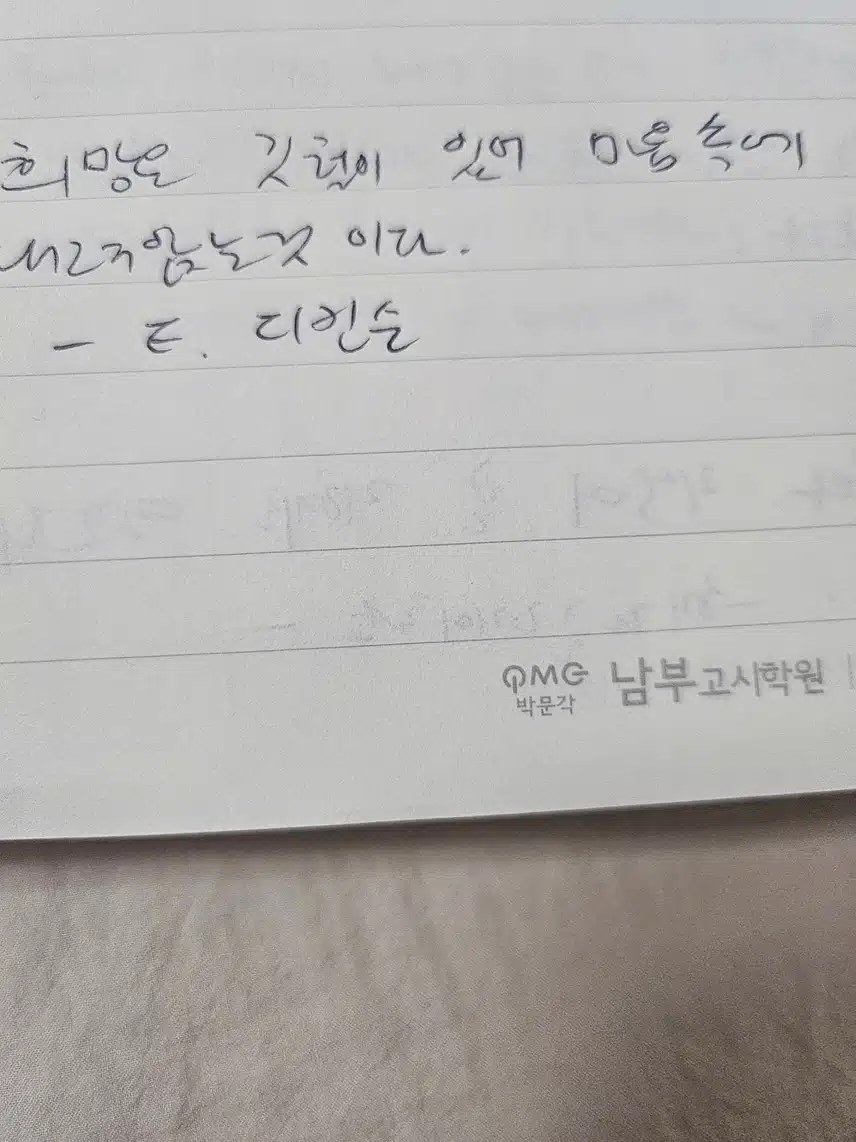 희망은 깃털이 있어 마음속에
내리지않는것 이다.
- E. 디킨슨
PMG 박문각 남부고시학원